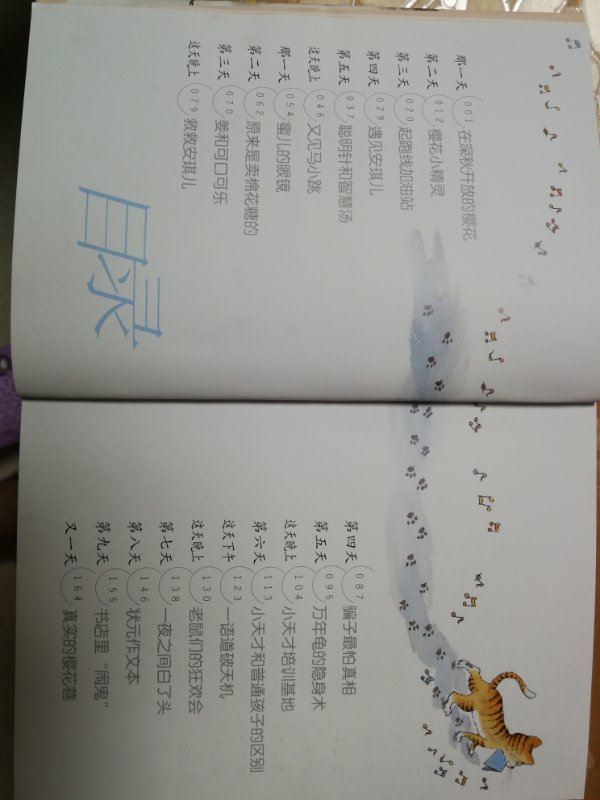 目录
那一天 001 在深秋开放的樱花
第二天 012 樱花小精灵
第三天 020 起跑线加油站
第四天 029 遇见安琪儿
第五天 037 聪明针和智慧汤
这天晚上 046 又见马小跳
那一天 054 蜜儿的眼镜
第二天 062 原来是卖棉花糖的
第三天 070 姜和可口可乐
这天晚上 079 救救安琪儿
第四天 087 骗子最怕真相
第五天 095 万年龟的隐身术
这天晚上 104 小天才培训基地
第六天 113 小天才和普通孩子的区别
这天下午 123 一语道破天机
这天晚上 130 老鼠们的狂欢会
第七天 138 一夜之间白了头
第八天 146 状元作文本
第九天 155 书店里“闹鬼”
又一天 164 真实的樱花巷